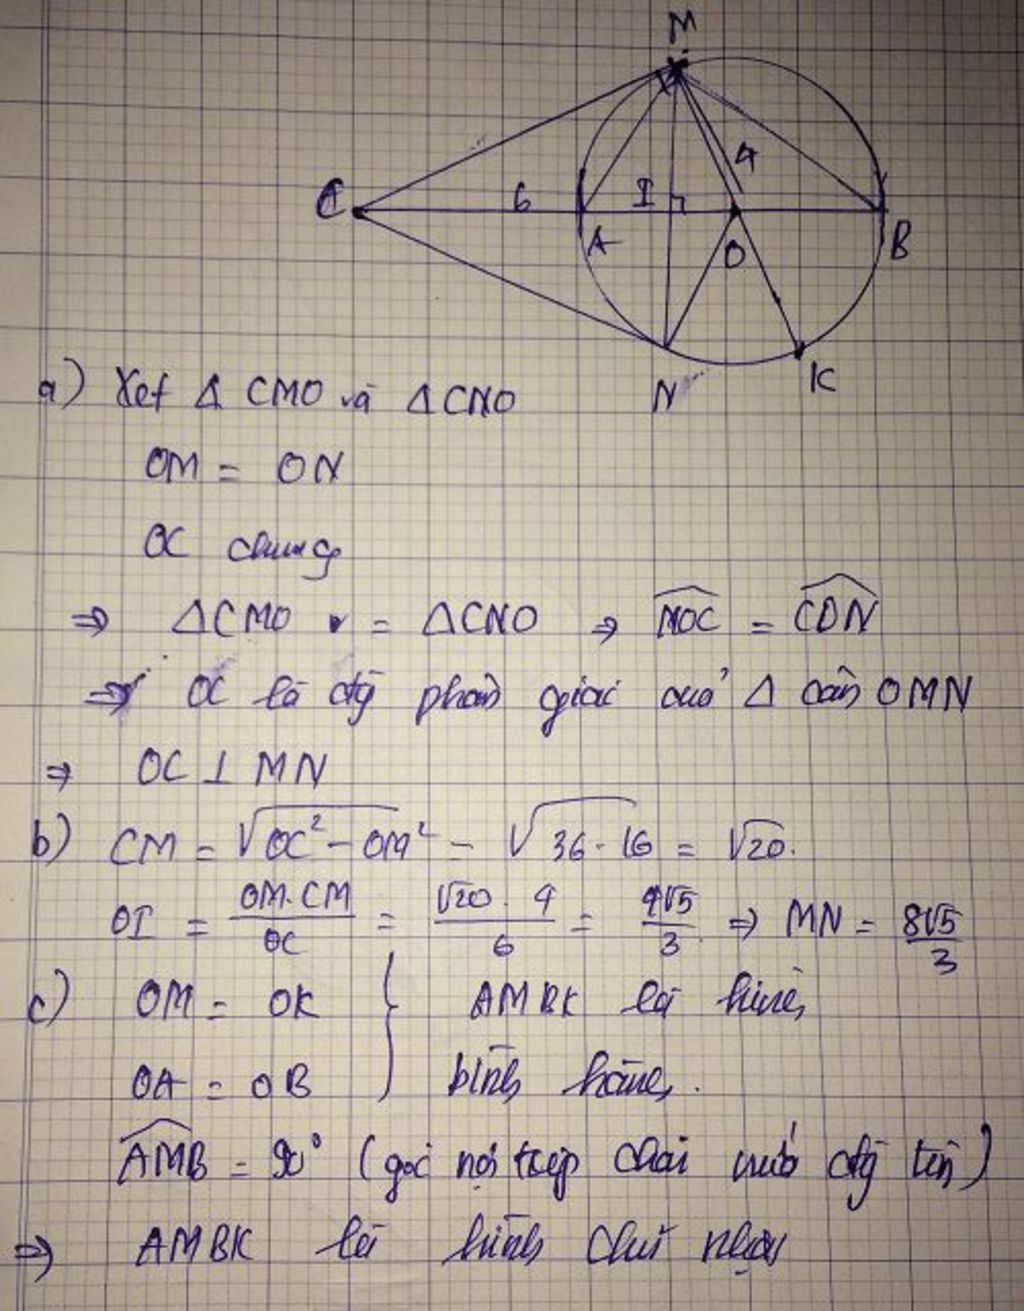 M
C 6 I 4
A O B
N K
a) Xét Δ CMO và Δ CNO
OM = ON
OC chung
⇒ ΔCMO = ΔCNO ⇒ \widehat{MOC} = \widehat{CON}
⇒ OC là đg phân giác của Δ cân OMN
⇒ OC ⊥ MN
b) CM = √(OC² - OM²) = √(36 - 16) = √20.
OI = OM.CM / OC = √20 . 4 / 6 = 4√5 / 3 ⇒ MN = 8√5 / 3
c) OM = OK } AMBK là hình
OA = OB } bình hành.
\widehat{AMB} = 90° (góc nội tiếp chắn nửa đg tròn)
⇒ AMBK là hình chữ nhật